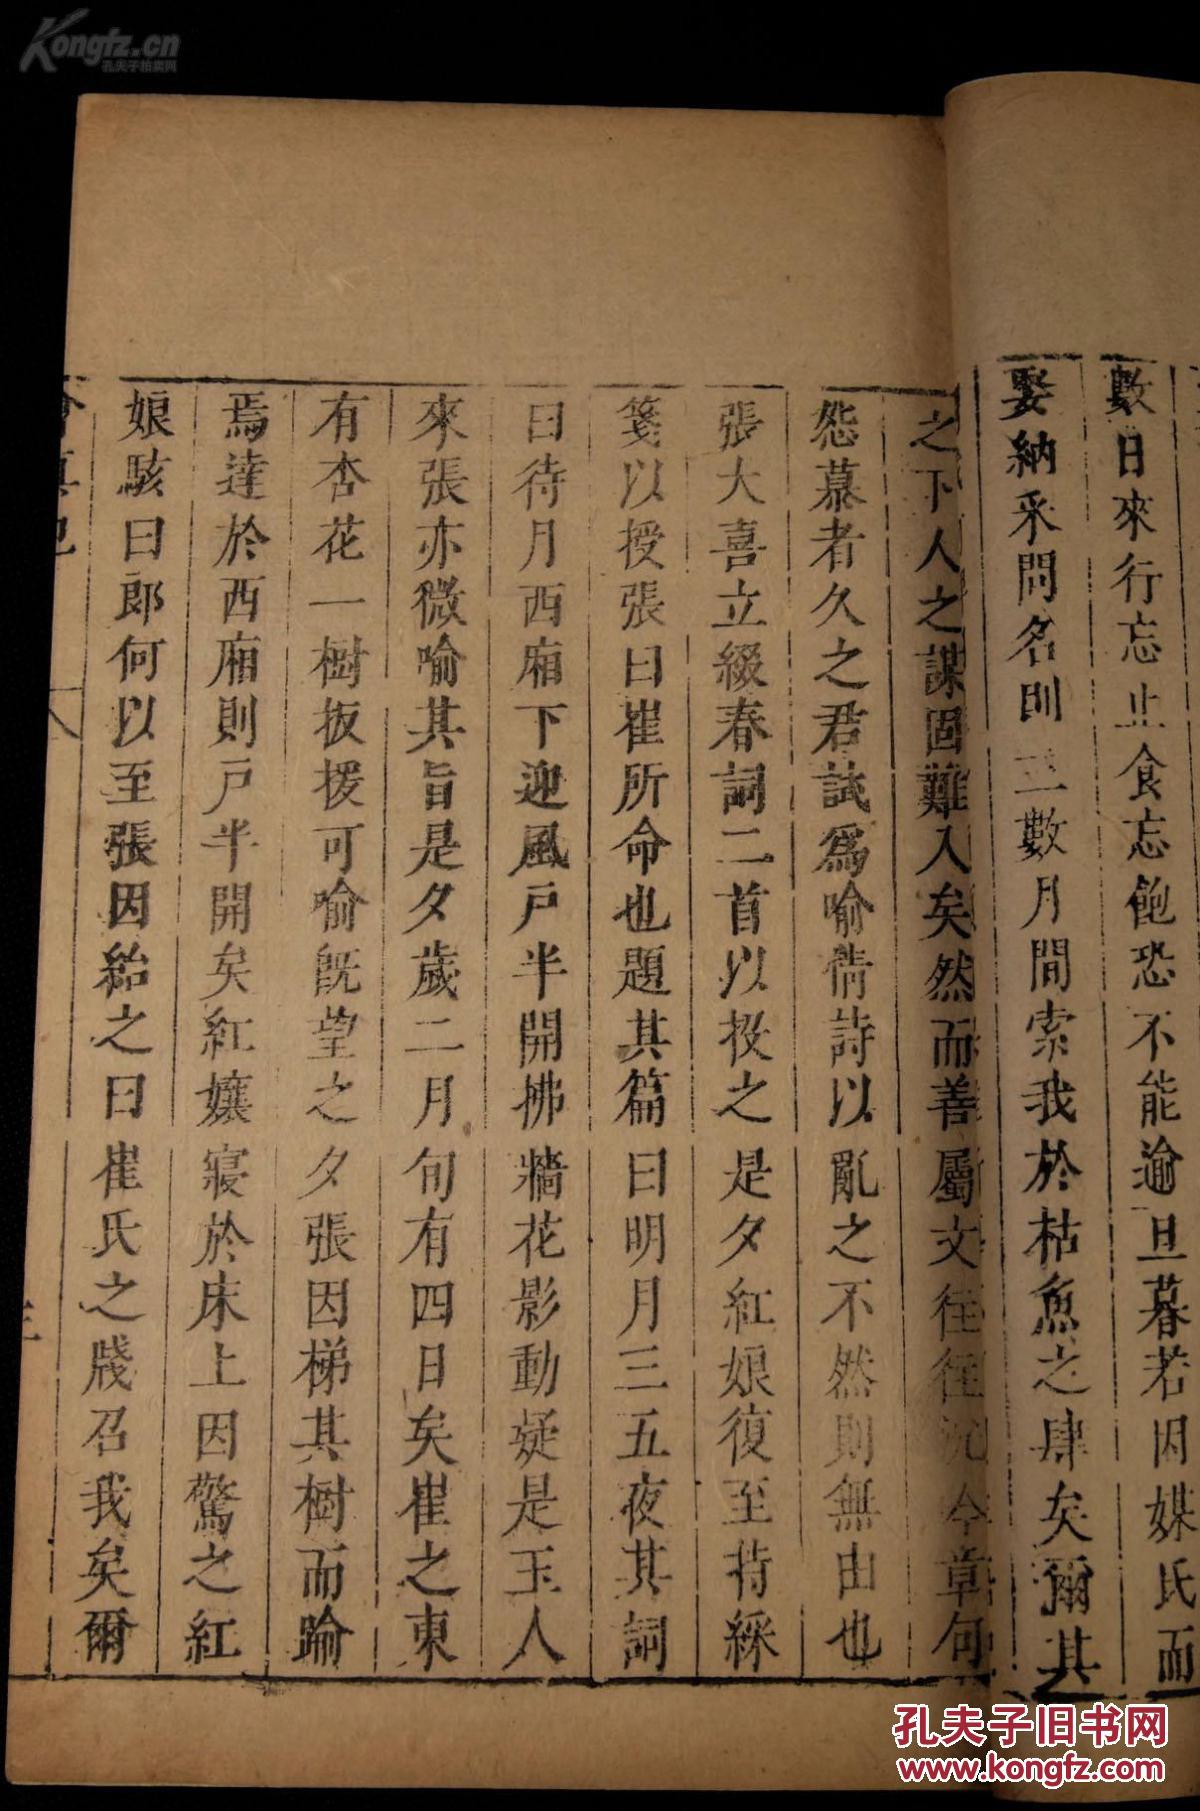 數日來行忘止食忘飽恐不能逾旦暮若因媒氏而
娶納采問名則三數月間索我於枯魚之肆矣爾其
之下人之謀固難入矣然而善屬文往往沉今章句
怨慕者久之君試爲喻情詩以亂之不然則無由也
張大喜立綴春詞二首以投之是夕紅娘復至持綵
箋以授張曰崔所命也題其篇曰明月三五夜其詞
曰待月西廂下迎風戸半開拂牆花影動疑是玉人
來張亦微喻其旨是夕歲二月旬有四日矣崔之東
有杏花一樹扳援可喻旣望之夕張因梯其樹而踰
焉達於西廂則戸半開矣紅孃寢於床上因驚之紅
娘駭曰郎何以至張因紿之曰崔氏之牋召我矣爾
會眞記
Kongfz.cn
孔夫子拍卖网
孔夫子旧书网
www.kongfz.com